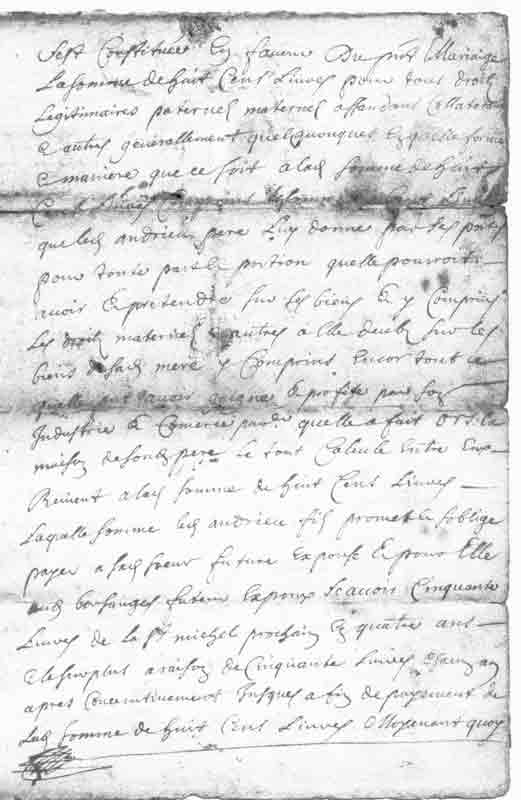 Sest Constituée En faveur Du pnt Mariaige
La somme de huit Cens Livres pour tous droitz
Legitimaires paternel maternel Collateraux
& autres generallement quelquonques En quelle forme
& maniere que ce soit a lad somme de huit
Cens Livres
que led andrieu pere Luy donne par Ses pntes
pour toute part & portion quelle pourroit
avoir & pretendre sur Ses biens En y Comprins
Les droitz maternel & autres a Elle deubz sur les
biens de sad mere y Comprins Encor tout ce
quelle peut avoir gaigne & profite par son
Industrie & Comerce quelle a fait la
maison de sond pere le tout Calcule Entre
Revient a lad somme de huit Cens Livres
Laquelle somme led andrieu fils promet & soblige
payer a sad soeur future Expouse & pour Elle
aud futeur Expoux Scavoir Cinquante
Livres de la St michel prochain En quatre ans
& le surplus a raison de Cinquante Livres Chaun an
apres Jusques a fin de payement de
Lad somme de huit Cens Livres Moyenant quoy